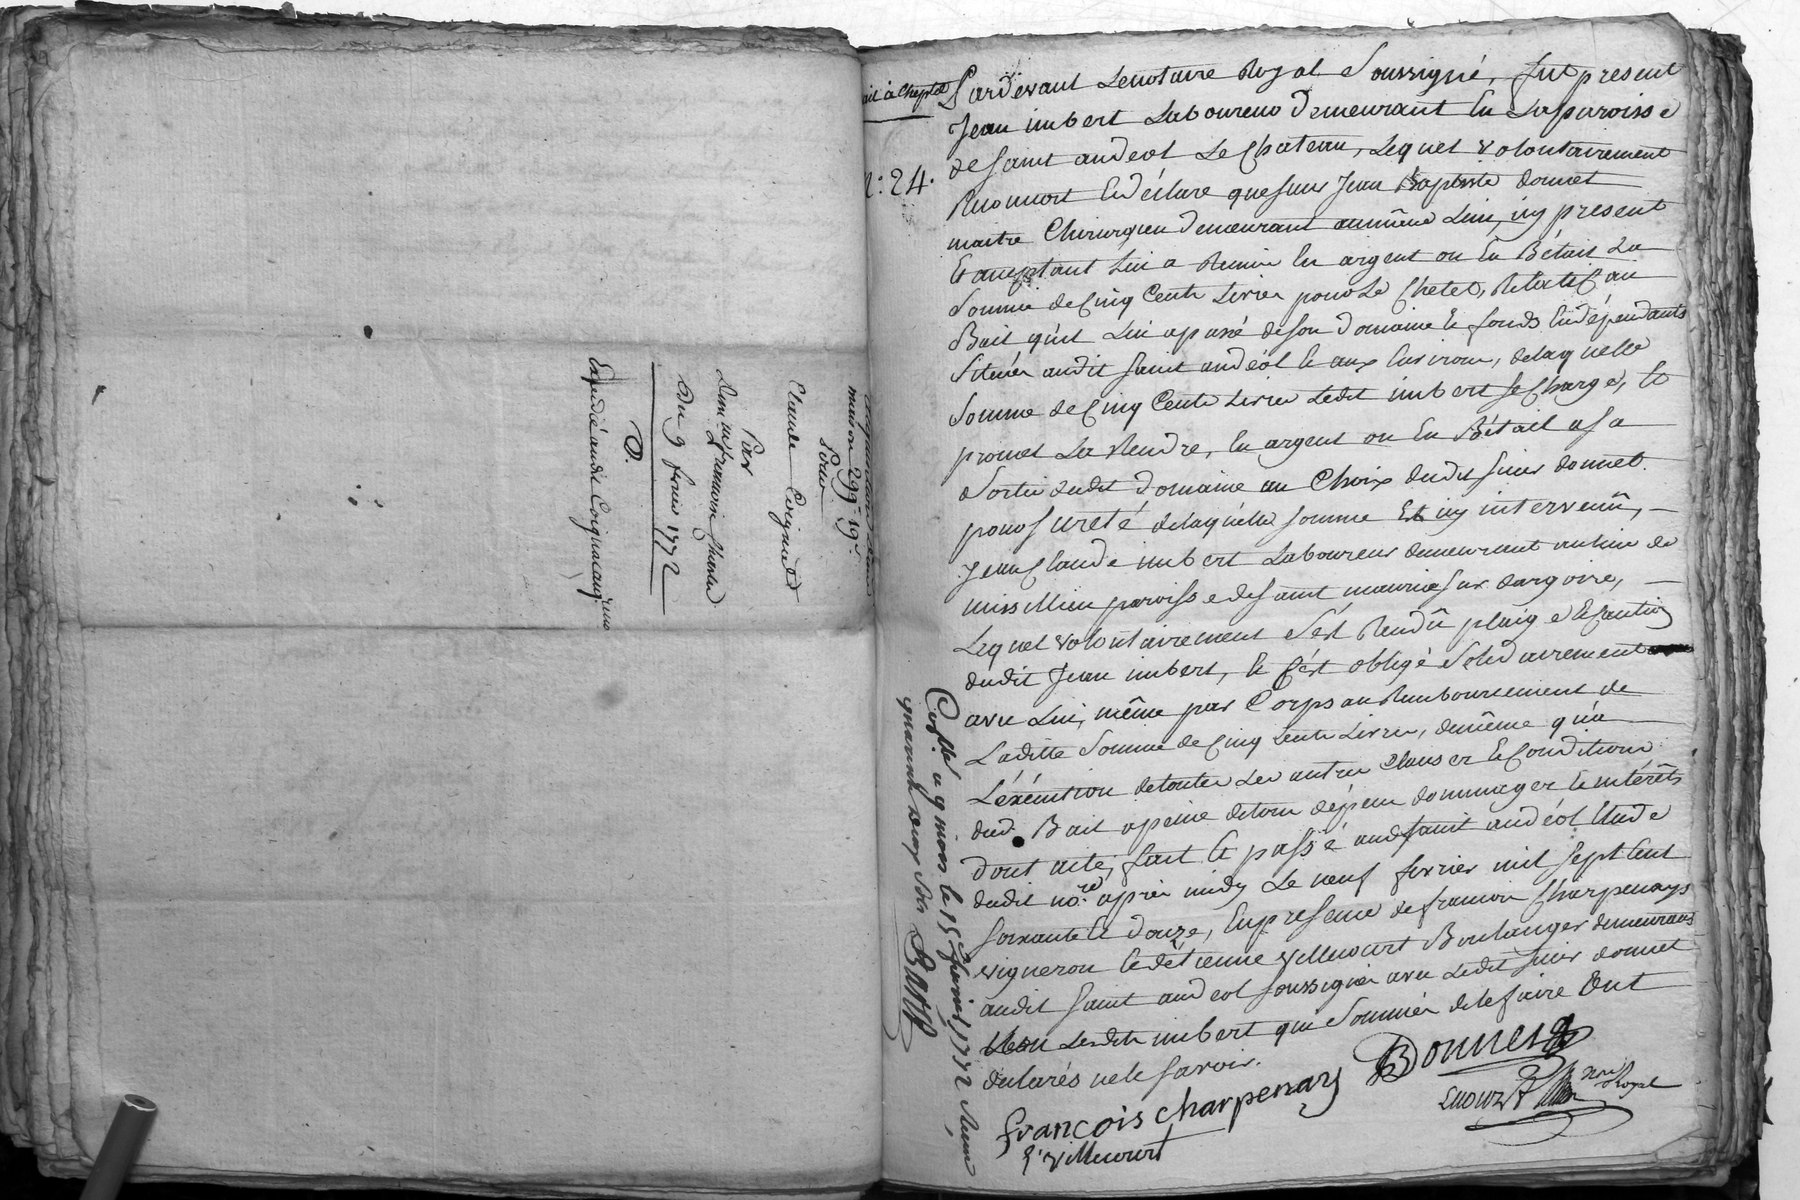 maison 299-19s
Claude Peignaud
Par
Du 9 fevrier 1772
D.
Expediée audit
ail à Cheptel
N.º 24.
Pardevant Le notaire Royal Soussigné, fut present
Jean imbert Laboureur demeurant En La paroisse
de saint andeol Le Chateau, Lequel volontairement
Reconnoit Et déclare que sieur Jean Baptiste donnet
maitre Chirurgien demeurant au même Lieu, icy present
Et acceptant Lui a Remis En argent ou En Bétail La
Somme de Cinq Cents Livres pour Le Chetel, Relatif au
Bail qu'il Lui a passé de son domaine Et fonds En dépendants
Situés audit saint andéol Et aux Environs, de laquelle
Somme de Cinq Cents Livres Ledit imbert se Charge, Et
promet La Rendre, En argent ou En Bétail a sa
Sortie dudit domaine au Choix dudit sieur donnet.
pour sureté de laquelle somme Est icy intervenû,
Jean Claude imbert Laboureur demeurant au lieu de
missillieu paroisse de saint maurice sur dargoire,
Lequel volontairement s'est Rendû pleige Et Caution
dudit Jean imbert, Et s'est obligé Solidairement
avec Lui, même par Corps au Remboursement de
Laditte Somme de Cinq Cents Livres, de même qu'a
L'éxécution de toutes Les autres Clauses Et Conditions
dud. Bail a peine de tous dépens dommages Et intérêts
dont acte, fait Et passé aud saint andéol Etude
dudit no.re après midy Le neuf fevrier mil sept Cent
soixante Et douze, En presence de francois Charpenays
vigneron Et d'Etienne Villecourt Boulanger demeurans
audit saint andeol soussignés avec Ledit sieur donnet
Non Lesdits imbert qui Sommés de le faire Ont
declarés ne le savoir.
Donnet
françois charpenay
E. Villecourt
nore Royal
Con.llé a givors le 15 fevrier 1772 Reçu
quarante deux sols